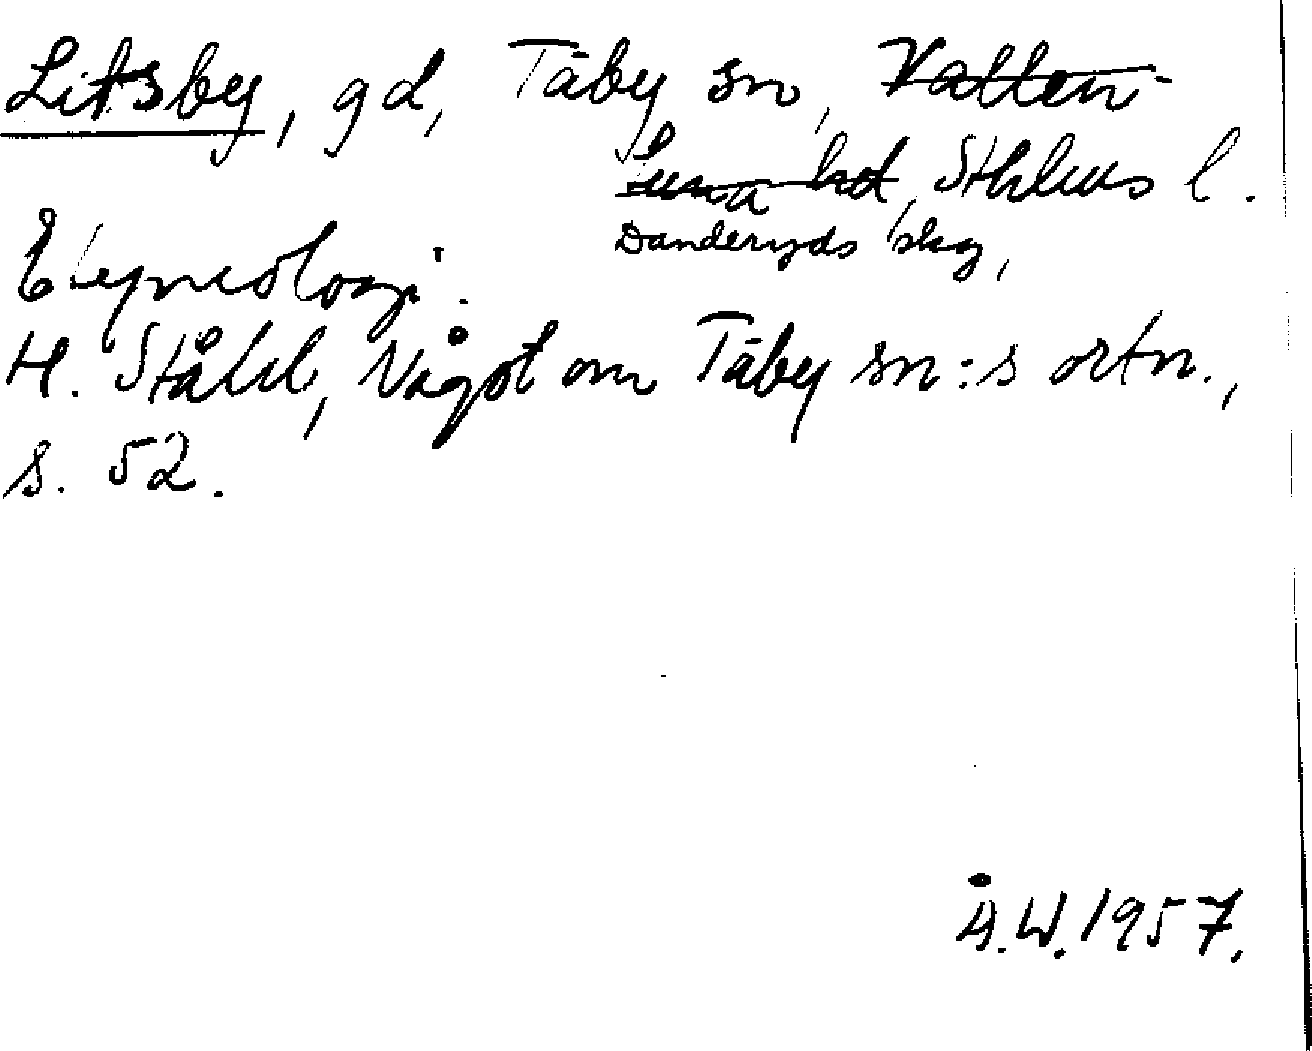 Litsby, gd, Täby sn, Vallen-
tuna hd, Sthlms l.
Danderyds skg,
Etymologi.
H. Ståhl, Något om Täby sn:s ortn.,
s. 52.
Å.W. 1957.